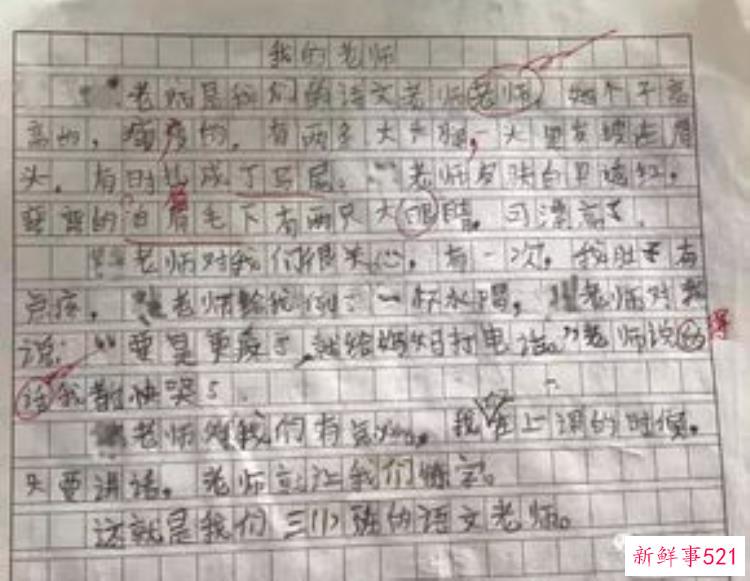 我的老师
老师是我们的语文老师老师，她个子高
高的，瘦瘦的，有两条大
头，有时扎成了马尾，老师皮肤白里透红，
弯弯的眉毛下有两只大眼睛，可漂亮了。
老师对我们很关心，有一次，我肚子有
点疼，老师给我倒了一杯水喝，老师对我
说：“要是更疼了，就给妈妈打电话。”老师说的
话我都快哭了
老师对我们有 我 在上课的时候，
只要讲话，老师就让我们练字。
这就是我们三(1)班的语文老师。
新鲜事521